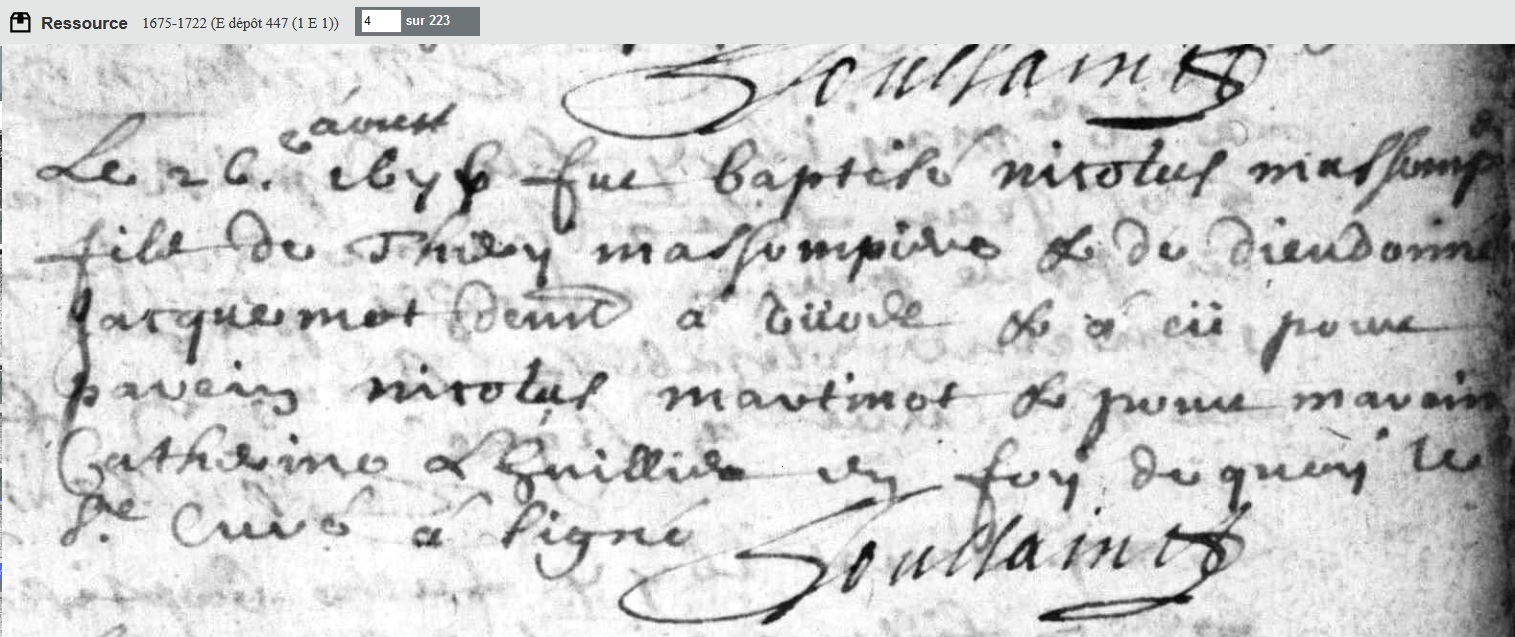 Ressource 1675-1722 (E dépôt 447 (1 E 1)) 4 sur 223
Toussainct
aoust
Le 26. fut baptisé nicolas
fils de Thiery massompiere & de dieudonné
Jacquemot & a eü pour
parein nicolas martinot & pour marein
Catherine Lhuillier en foy de quoy le
Sr Curé a signé Toussainct